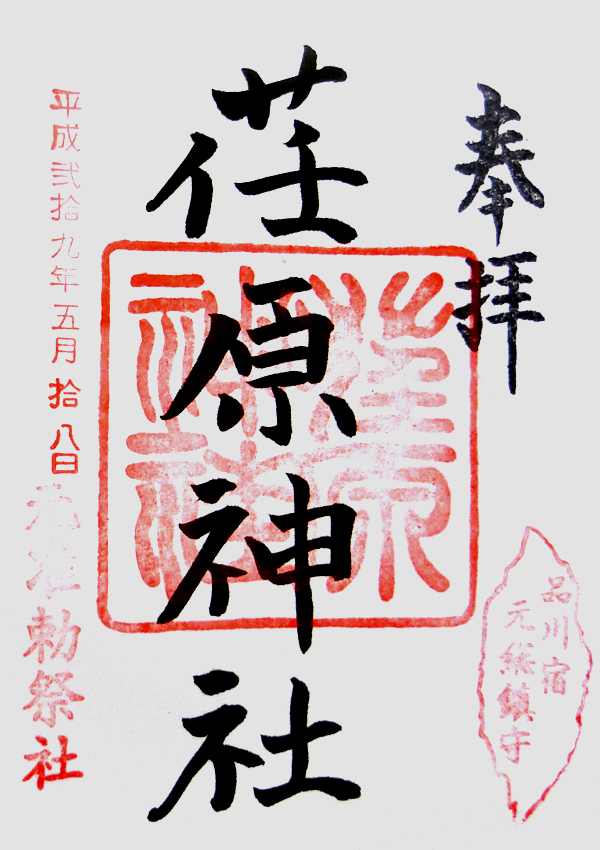 奉拝
品川宿
元総鎮守
荏原神社
荏原
神社
平成弐拾九年五月拾八日
元准勅祭社